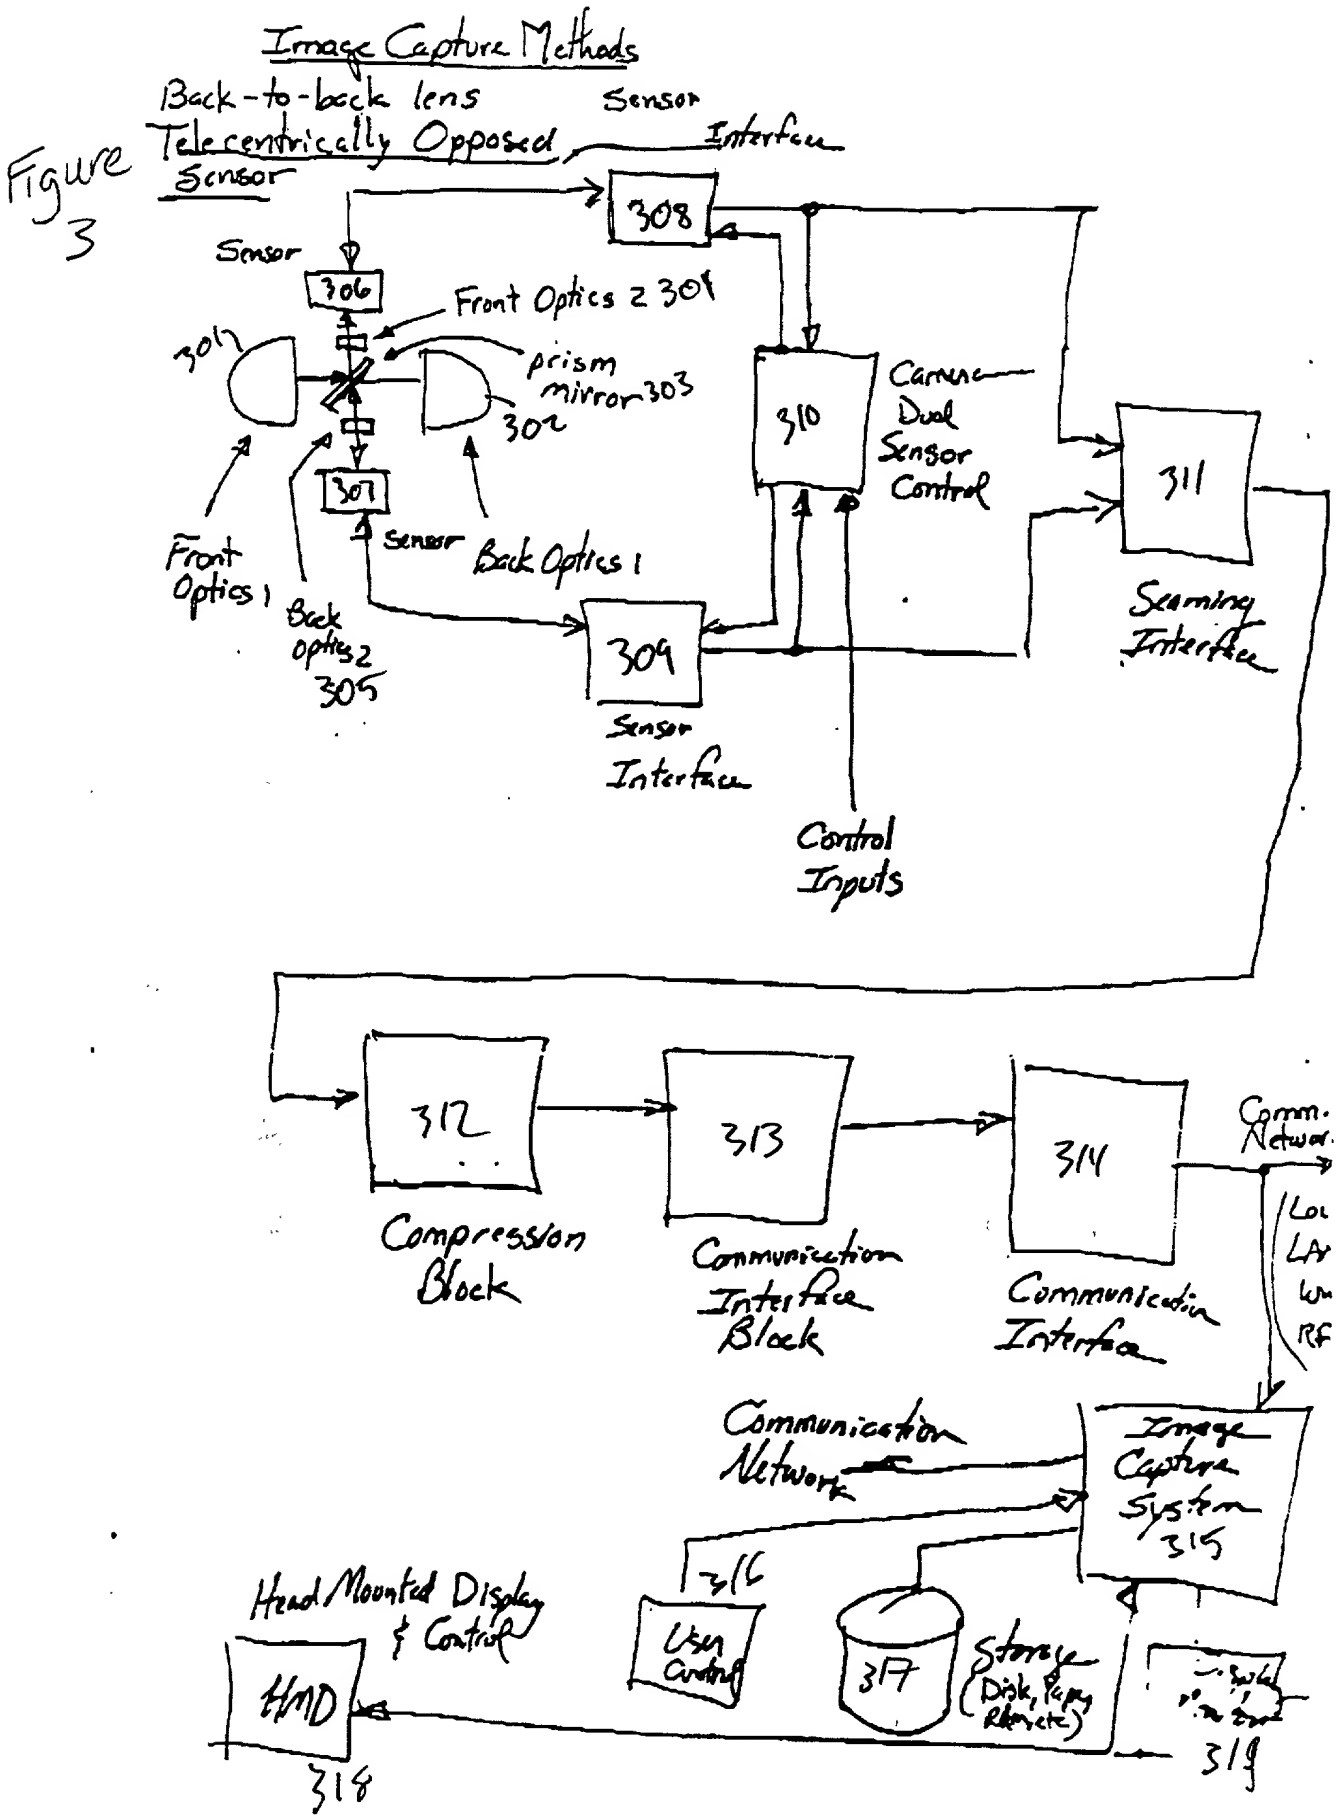 Image Capture Methods
Back-to-back lens
Telecentrically Opposed
Sensor
Sensor
Interface
Figure
3
308
Sensor
306
Front Optics 2 304
301
prism
mirror 303
302
307
Sensor
Front
Optics 1
Back
optics 2
305
Back Optics 1
310
Camera
Dual
Sensor
Control
311
Seaming
Interface
309
Sensor
Interface
Control
Inputs
312
Compression
Block
313
Communication
Interface
Block
314
Communication
Interface
Comm.
Networ
LAN
RF
Communication
Network
Image
Capture
System
315
316
User
Control
317
Storage
(Disk,
Head Mounted Display
& Control
HMD
318
319